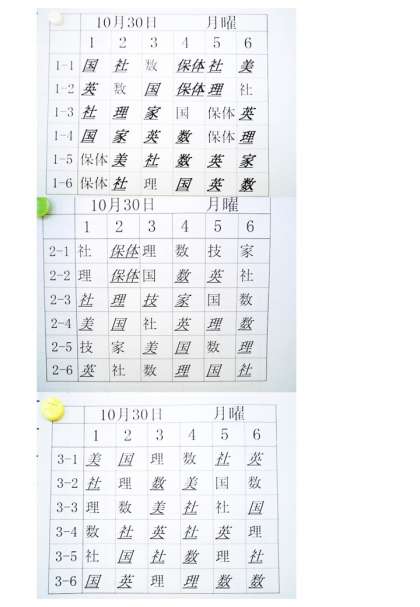 10月30日 月曜
1 2 3 4 5 6
1-1 国 社 数 保体 社 美
1-2 英 数 国 保体 理 社
1-3 社 理 家 国 保体 英
1-4 国 家 英 数 保体 理
1-5 保体 美 社 数 英 家
1-6 保体 社 理 国 英 数
10月30日 月曜
1 2 3 4 5 6
2-1 社 保体 理 数 技 家
2-2 理 保体 国 数 英 社
2-3 社 理 技 家 国 数
2-4 美 国 社 英 理 数
2-5 技 家 美 国 数 理
2-6 英 社 数 理 国 社
10月30日 月曜
1 2 3 4 5 6
3-1 美 国 理 数 社 英
3-2 社 理 数 美 国 数
3-3 理 数 美 社 社 国
3-4 数 社 英 社 英 理
3-5 社 国 社 数 理 社
3-6 国 英 理 理 数 数